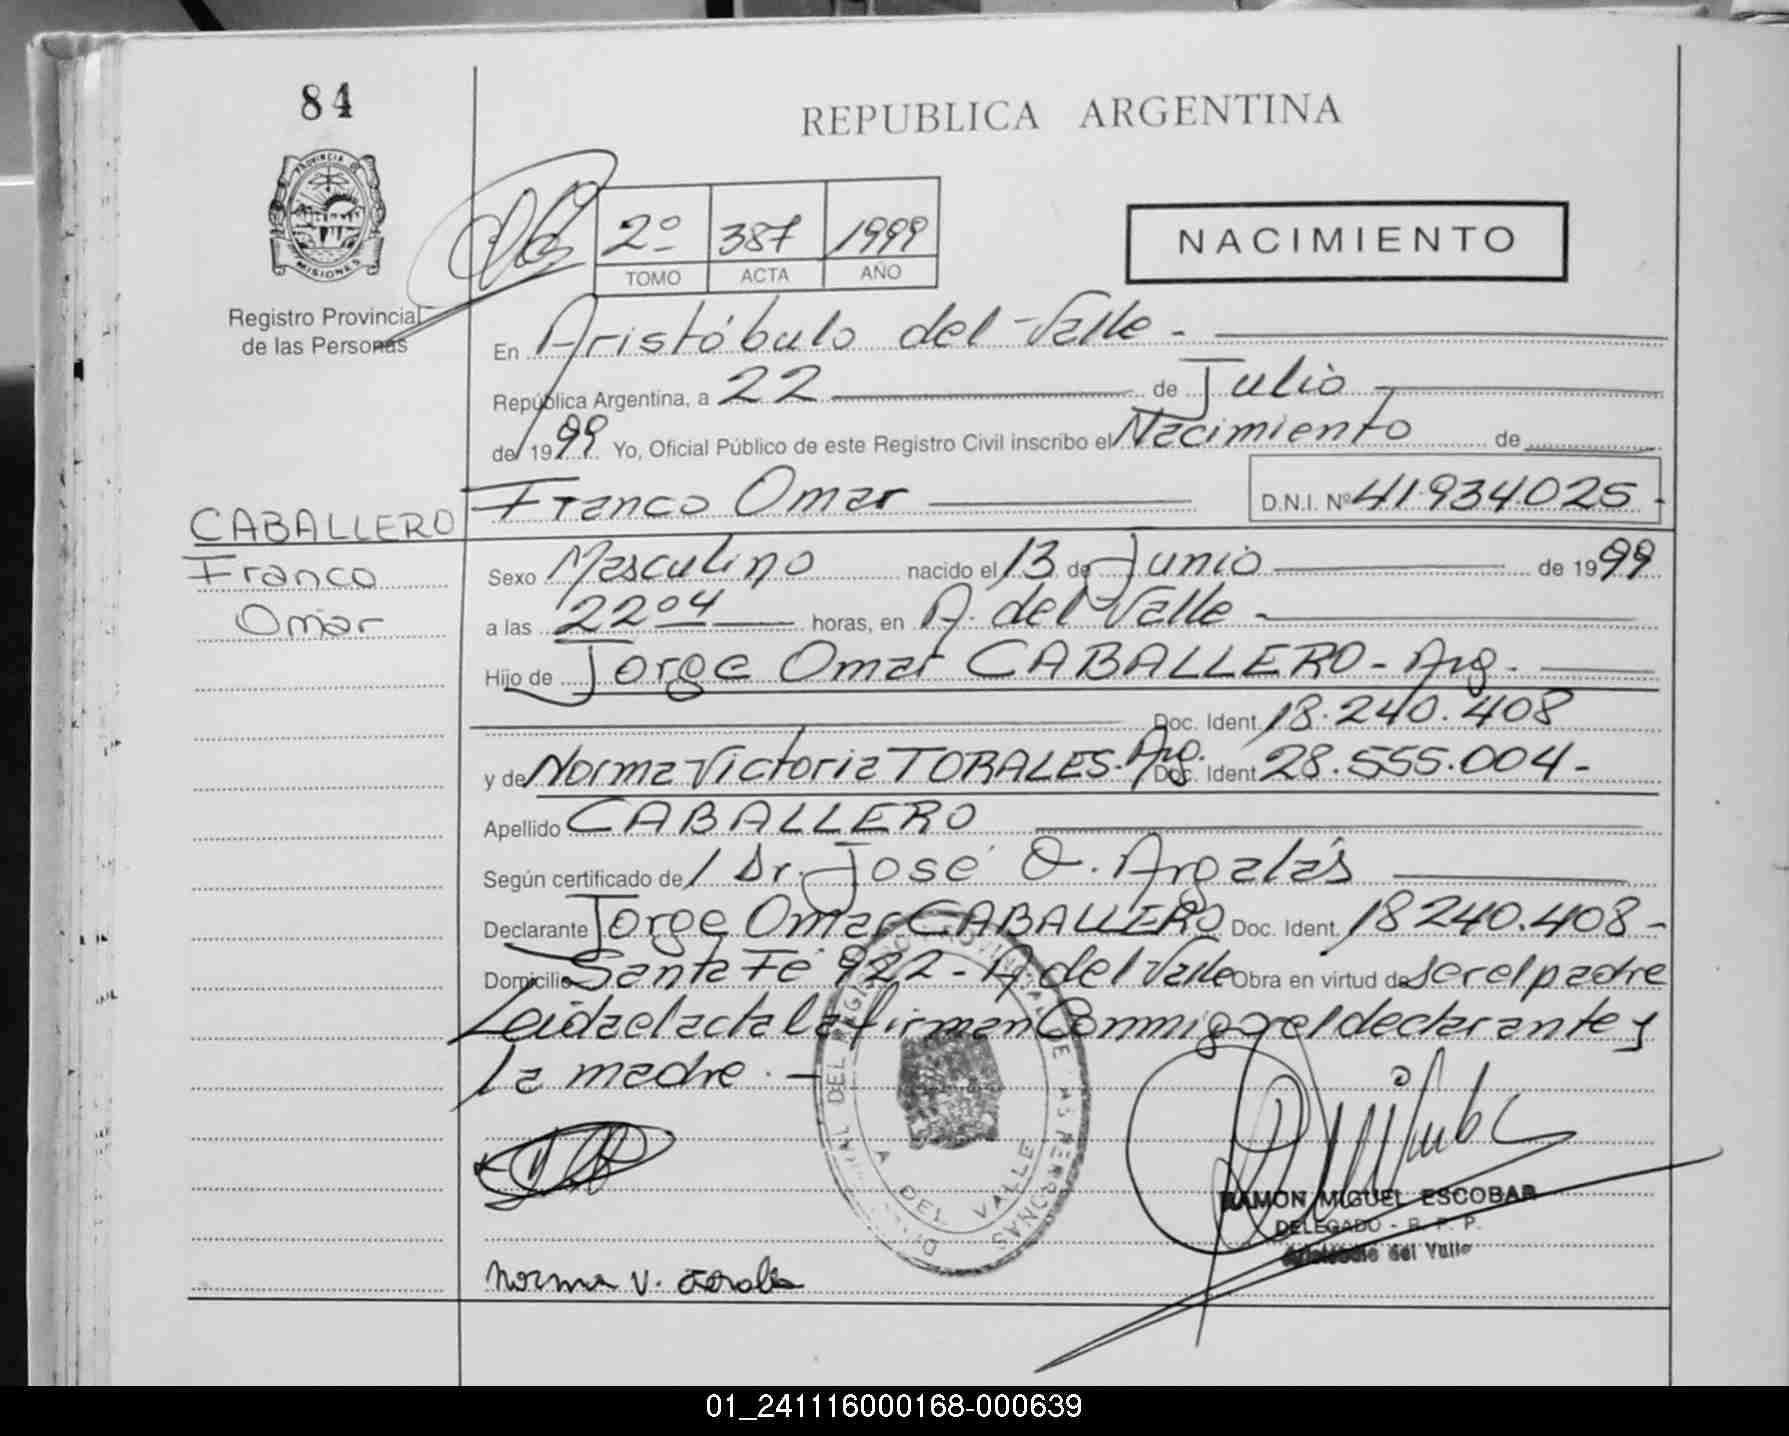 84
REPUBLICA ARGENTINA
PROVINCIA DE
MISIONES
Registro Provincial
de las Personas
2º 387 1999
TOMO ACTA AÑO
NACIMIENTO
En Aristóbulo del Valle.-
República Argentina, a 22 de Julio
de 1999 Yo, Oficial Público de este Registro Civil inscribo el Nacimiento de
Franco Omar D.N.I. Nº 41.934.025.-
CABALLERO
Franco
Omar
Sexo Masculino nacido el 13 de Junio de 1999
a las 22 04 horas, en A. del Valle
Hijo de Jorge Omar CABALLERO - Arg.
Doc. Ident. 18.240.408
y de Norma Victoria TORALES. Arg. Doc. Ident. 28.555.004-
Apellido CABALLERO
Según certificado de / Dr. José O. Argalás
Declarante Jorge Omar CABALLERO Doc. Ident. 18240.408-
Domicilio Santa Fé 922 - A del Valle Obra en virtud de ser el padre
Leida el acta la firman Conmigo el declarante y
la madre.-
DEL REGISTRO PROVINCIAL DE LAS PERSONAS
A. DEL VALLE
RAMON MIGUEL ESCOBAR
DELEGADO - R. P. P.
Aristobulo del Valle
Norma V. Torales
01_241116000168-000639